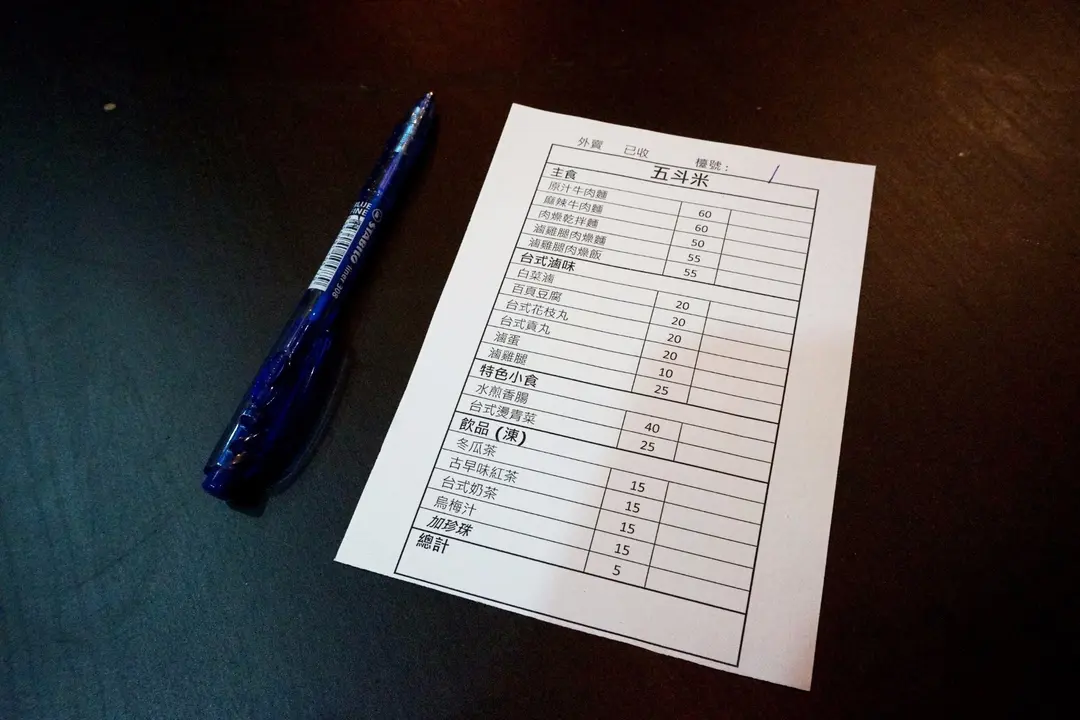 外賣 已收 檯號： /
五斗米
主食
原汁牛肉麵 60
麻辣牛肉麵 60
肉燥乾拌麵 50
滷雞腿肉燥麵 55
滷雞腿肉燥飯 55
台式滷味
白菜滷 20
百頁豆腐 20
台式花枝丸 20
台式貢丸 20
滷蛋 10
滷雞腿 25
特色小食
水煎香腸 40
台式燙青菜 25
飲品 (凍)
冬瓜茶 15
古早味紅茶 15
台式奶茶 15
烏梅汁 15
加珍珠 5
總計
BLUE
FINE
STABILO liner 308